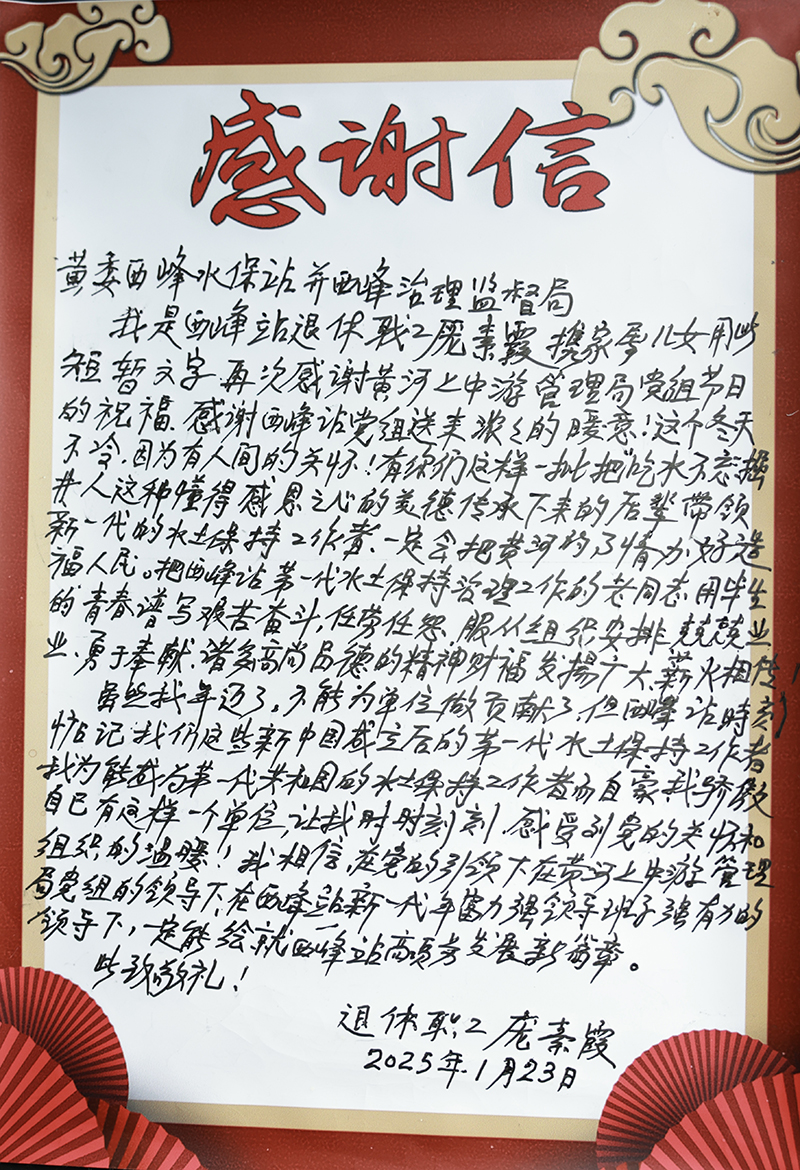 感谢信
黄委西峰水保站并西峰治理监督局
我是西峰站退休职工庞素霞携家属儿女用此
短暂文字再次感谢黄河上中游管理局党组节日
的祝福、感谢西峰站党组送来浓浓的暖意！这个冬天
不冷，因为有人间的关怀！有你们这样一批把“吃水不忘掘
井人这种懂得感恩之心的美德传承下来的后辈带领
新一代的水土保持工作者、一定会把黄河的事情办好造
福人民。把西峰站第一代水土保持治理工作的老同志、用毕生
的青春谱写艰苦奋斗，任劳任怨、服从组织安排、兢兢业
业、勇于奉献、诸多高尚品德的精神财福发揚广大、薪火相传！
虽然我年迈了，不能为单位做贡献了，但西峰站時刻
惦记我们这些新中国成立后的第一代水土保持工作者
我为能成为第一代共和国的水土保持工作者而自豪、我骄傲
自己有这样一个单位，让我时时刻刻、感受到党的关怀和
组织的温暖！我相信，在党的引领下在黄河上中游管理
局党组的领导下，在西峰站新一代年富力强领导班子强有力的
领导下，一定能绘就西峰站高质量发展新篇章。
此致敬礼！
退休职工庞素霞
2025年1月23日